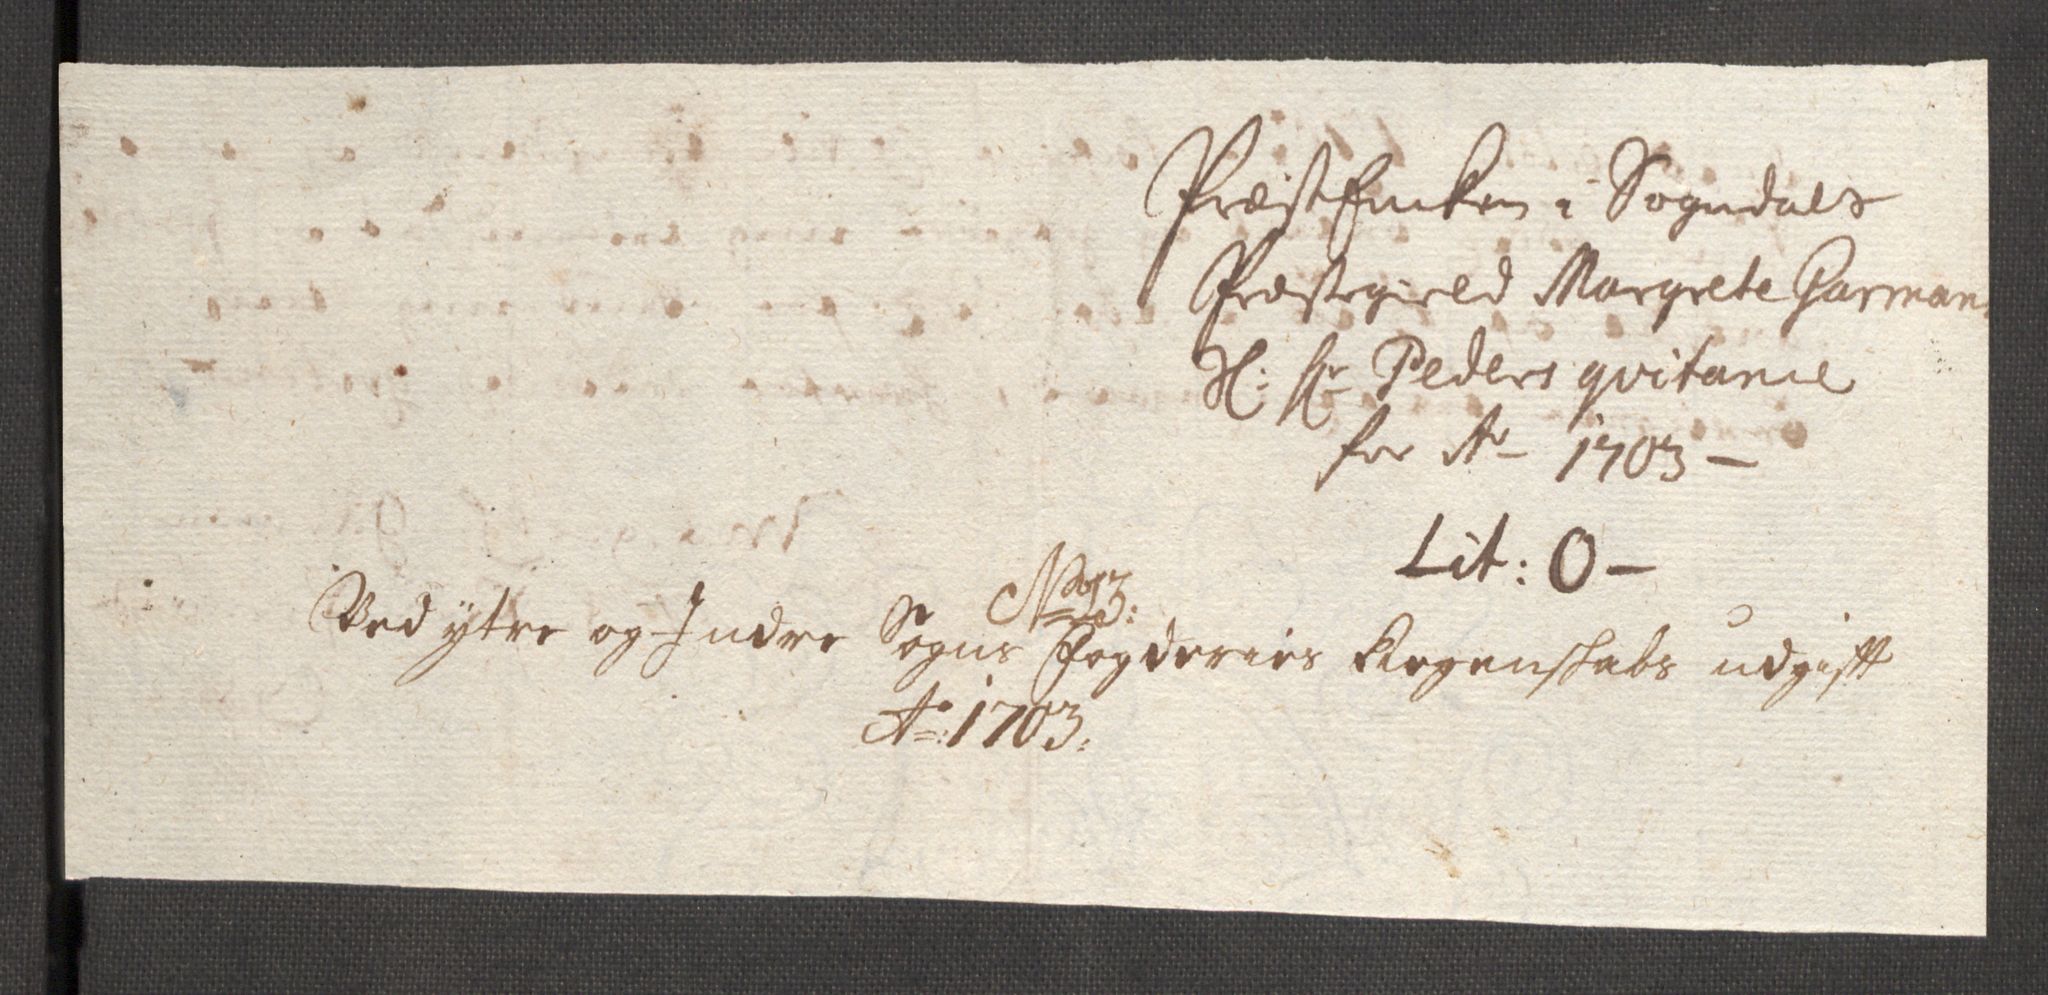 PræstEncken i Sogndals
Præstegield Margrete Garmans
Sl: Hr Peders qvitancie
for Ao 1703 –
Lit: O –
No 13:
Ved ytre og Indre Sogns Fogderies Regenskabs udgifft
Ao: 1703.